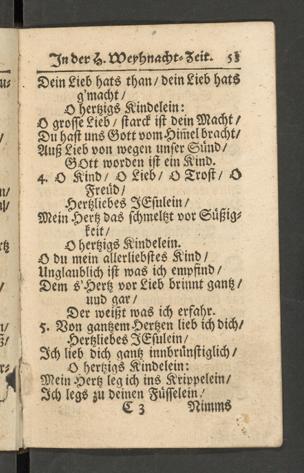 In der H. Weyhnacht-Zeit. 53
Dein Lieb hats than/ dein Lieb hats
g'macht/
O hertzigs Kindelein:
O grosse Lieb/ starck ist dein Macht/
Du hast uns Gott vom Him̃el bracht/
Auß Lieb von wegen unser Sünd/
GOtt worden ist ein Kind.
4. O Kind/ O Lieb/ O Trost/ O
Freüd/
Hertzliebes JEsulein/
Mein Hertz das schmeltzt vor Süßig-
keit/
O hertzigs Kindelein.
O du mein allerliebstes Kind/
Unglaublich ist was ich empfind/
Dem s'Hertz vor Lieb brinnt gantz/
und gar/
Der weißt was ich erfahr.
5. Von gantzem Hertzen lieb ich dich/
Hertzliebes JEsulein/
Ich lieb dich gantz innbrünstiglich/
O hertzigs Kindelein:
Mein Hertz leg ich ins Krippelein/
Ich legs zu deinen Füsselein/
C 3 Nimms